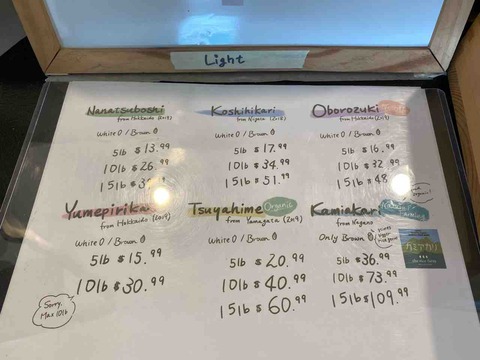 Light
Nanatsuboshi
from Hokkaido (2019)
White / Brown
5lb $13.99
10lb $26.99
15lb $3
Koshihikari
from Niigata (2018)
White / Brown
5lb $17.99
10lb $34.99
15lb $51.99
Oborozuki
from Hokkaido (2019)
White / Brown
5lb $16.99
10lb $32.99
15lb $48.
Yumepirika
from Hokkaido (2019)
White / Brown
5lb $15.99
10lb $30.99
Sorry.
Max 10lb
Tsuyahime Organic
from Yamagata (2019)
White / Brown
5lb $20.99
10lb $40.99
15lb $60.99
Kamiakari
from Nagano
Only Brown
5lb $36.99
10lb $73.99
15lb $109.99
カミアカリ